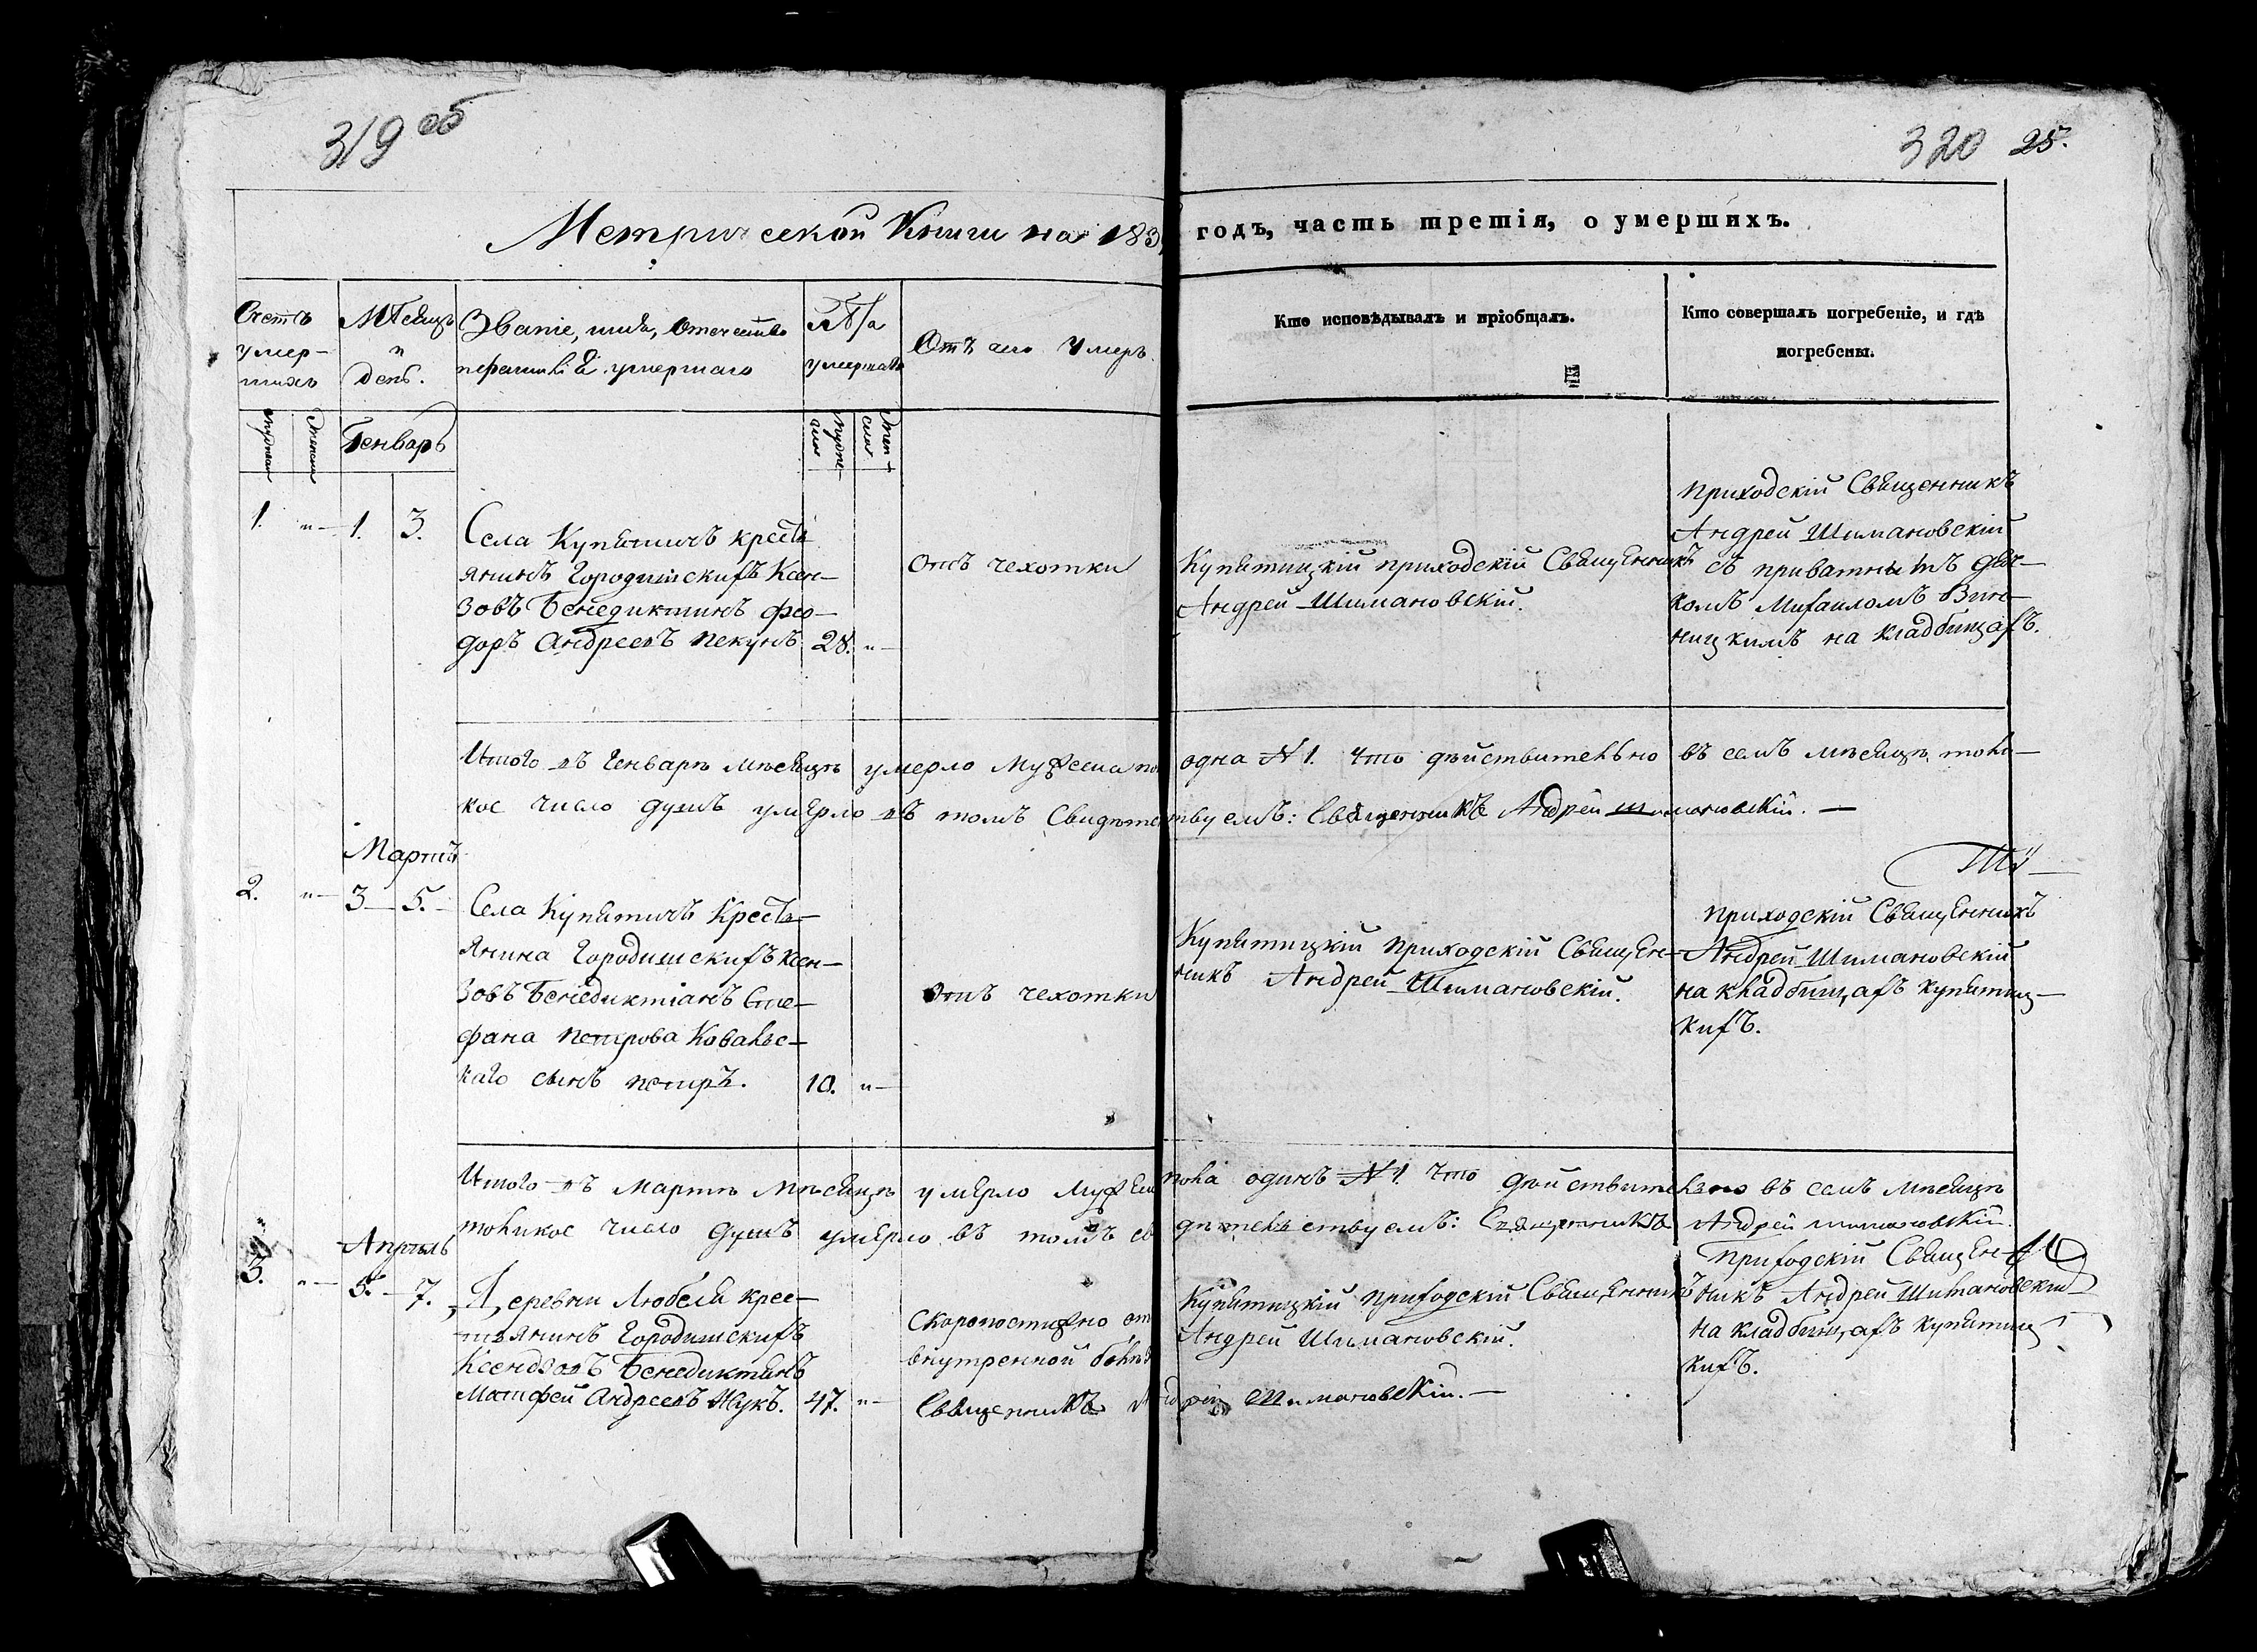 319 об
320 25.
Метрической Книги на 183
годъ, часть третія, о умершихъ.
Счетъ умер-шихъ
Мѣсяцъ и день.
Званіе, имя, отечество
и фамилія умершаго
Лѣта умершаго
Отъ чего умеръ.
Кто исповѣдывалъ и пріобщалъ.
Кто совершалъ погребеніе, и гдѣ
погребены.
Генварь
1. „ 1. 3.
Села Купятичъ кресть
янинъ Городишскихъ Ксен-
зовъ Бенедиктинъ Фео-
доръ Андреевъ Пекунъ 28. „
Отъ чехотки
Купятицкій приходскій Священникъ
Андрей Шимановскій.
Приходскій Священникъ
Андрей Шимановскій
съ приватнымъ дья-
комъ Михаиломъ Вин-
ницкимъ на кладбищахъ.
Итого въ Генварѣ мѣсяцѣ умерло мужеска по одна № 1. Что дѣйствительно въ семъ мѣсяцѣ толи-
кое число душъ умерло въ томъ Свидѣте твуемъ: Священникъ Андрей Шимановскій.
Мартъ
2. „ 3 5.
Села Купятичъ Кресть-
янина Городишскихъ Ксен-
зовъ Бенедиктіанъ Сте-
фана Петрова Ковальс-
каго сынъ Петръ. 10. „
Отъ чехотки
Купятицкій Приходскій Священ-
никъ Андрей Шимановскій.
Приходскій Священникъ
Андрей Шимановскій
на кладбищахъ Купятиц-
кихъ.
Итого въ Мартѣ мѣсяцѣ умерло Мужеск пола одинъ № 1. Что дѣйствительно въ семъ мѣсяцѣ
толикое число душъ умерло въ томъ св дѣтельствуемъ: Священникъ Андрей Шимановскій.
Апрѣль
3. „ 5. 7.
Деревни Любеля крес-
тьянинъ Городишскихъ
Ксендзовъ Бенедиктинъ
Матфей Андреевъ Жукъ. 47. „
Скоропостижно от
внутренной болѣз
Купятицкій Приходскій Священникъ
Андрей Шимановскій.
Приходскій Священ-
никъ Андрей Шимановскій
на кладбищахъ Купятиц
кихъ.
Священникъ Андрей Шимановскій.